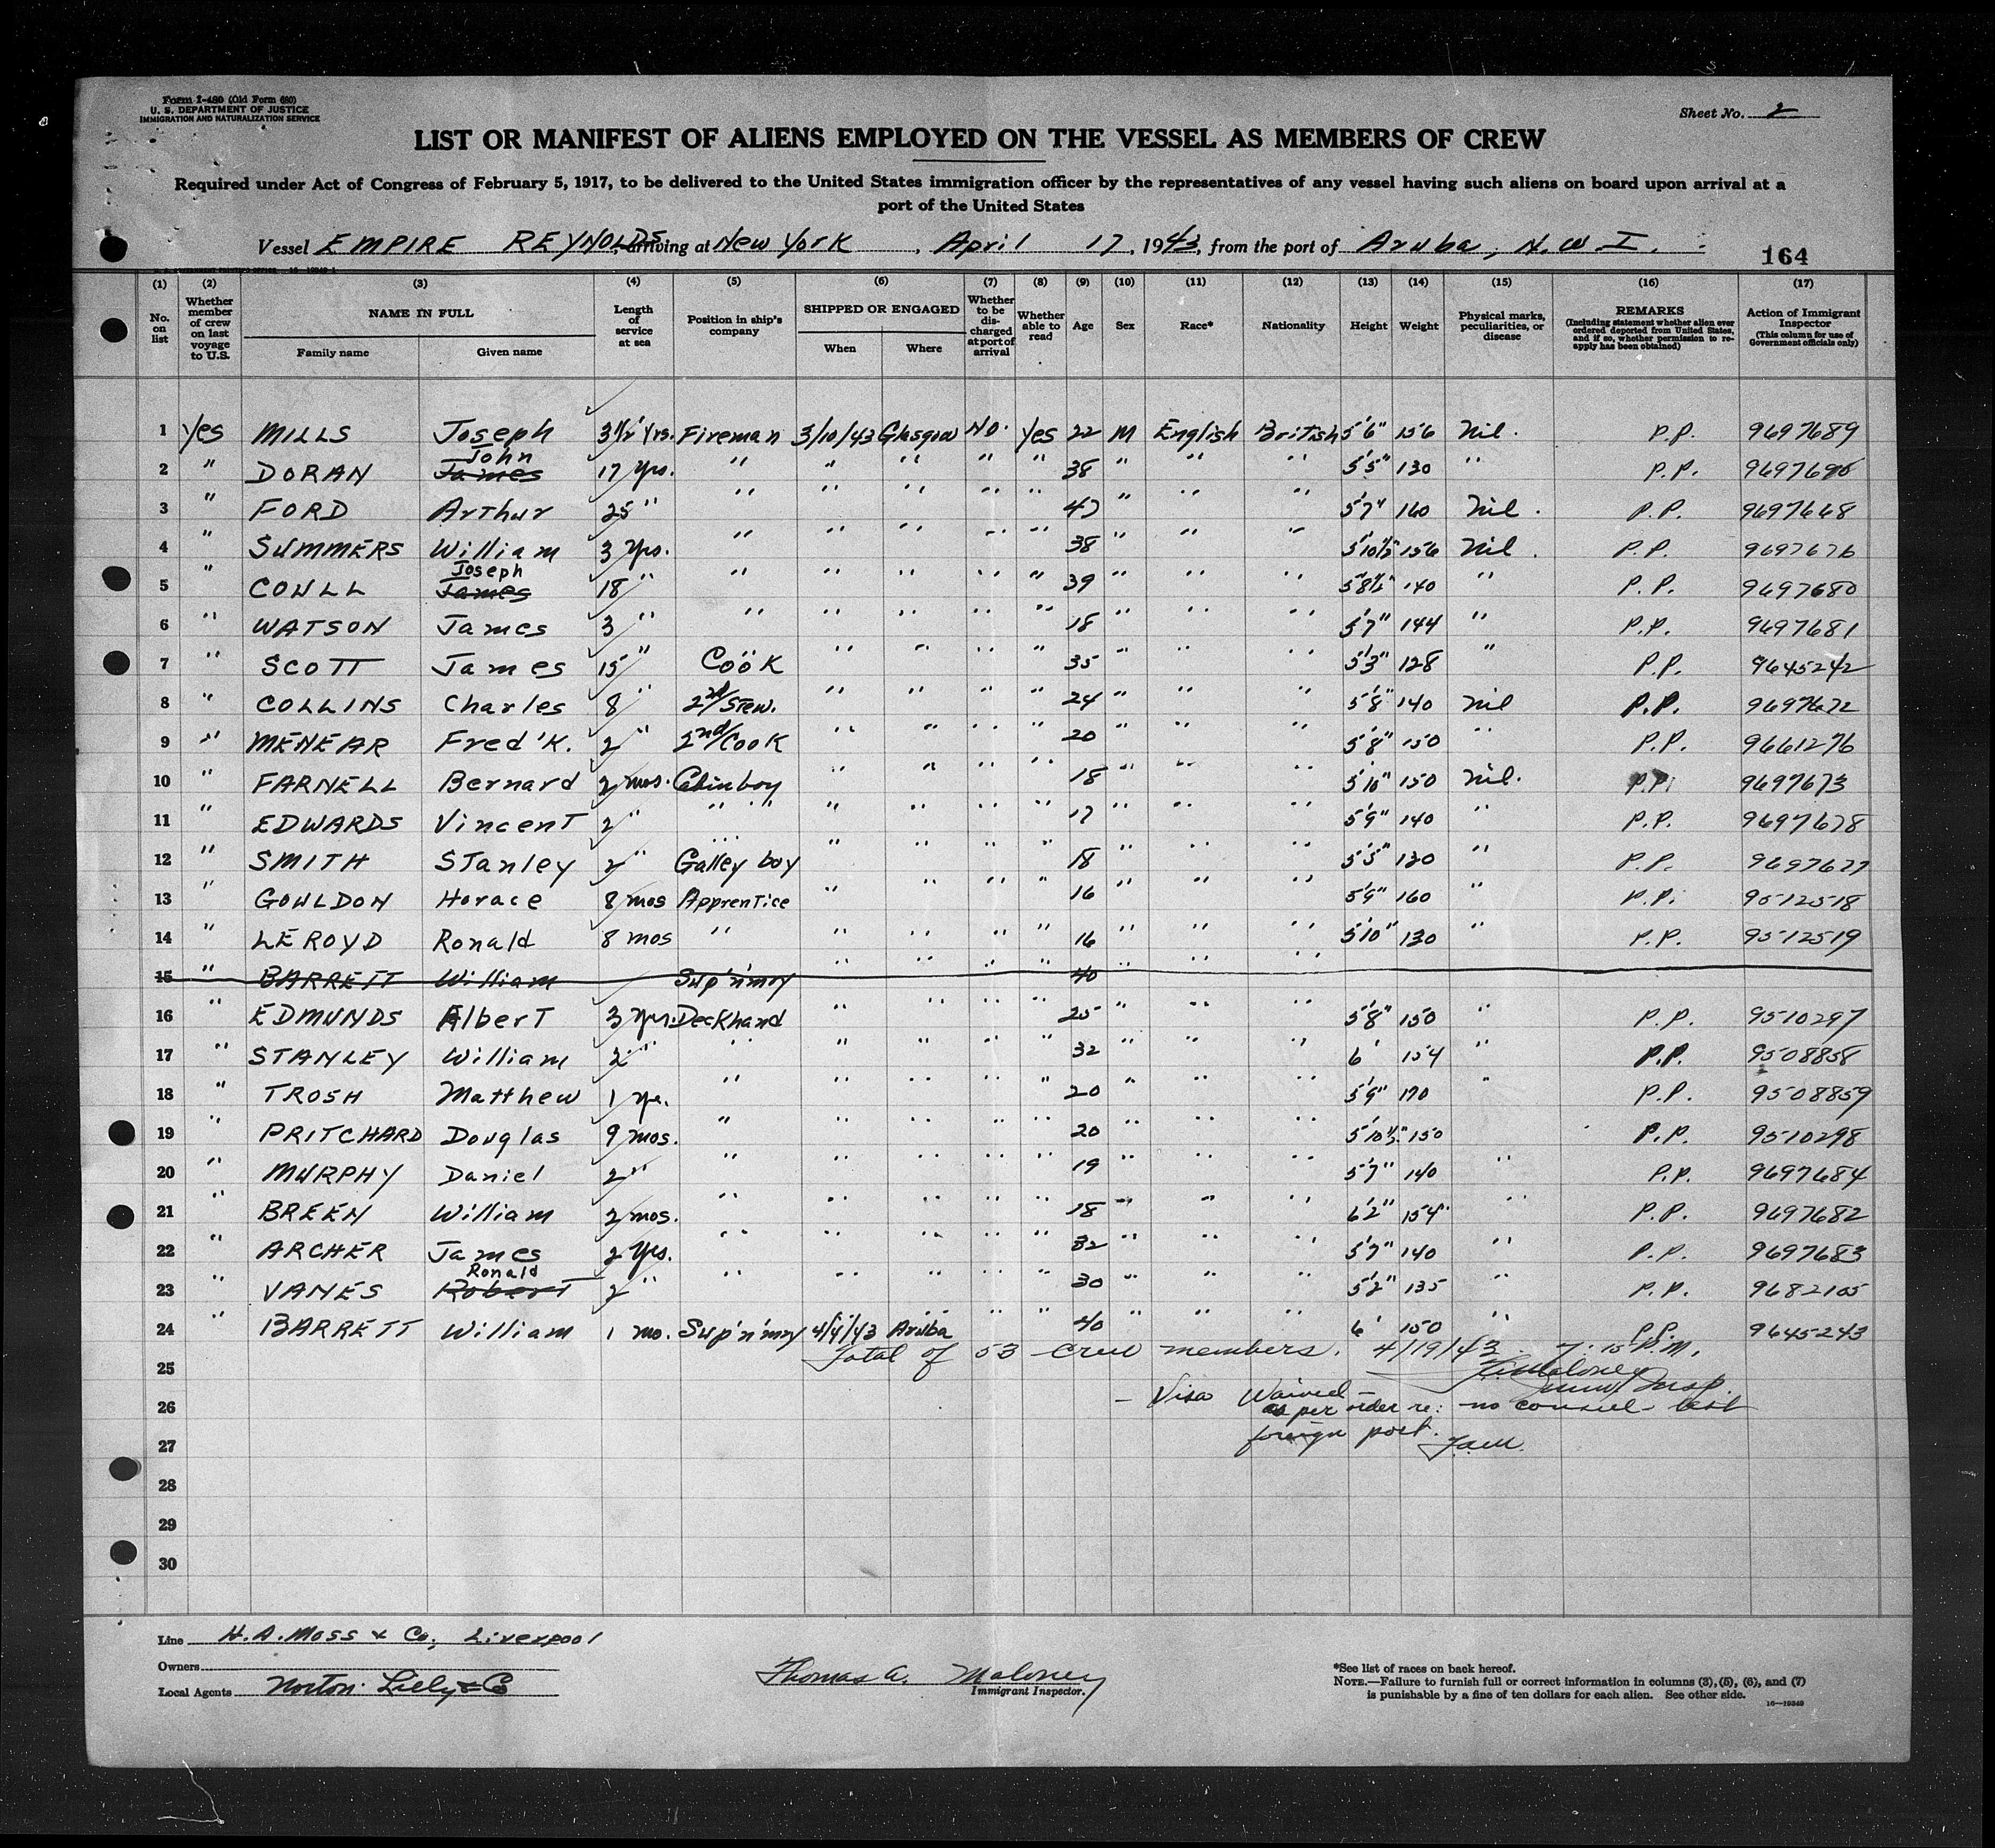 Form I-480 (Old Form 680)
U. S. DEPARTMENT OF JUSTICE
IMMIGRATION AND NATURALIZATION SERVICE
Sheet No. 2
LIST OR MANIFEST OF ALIENS EMPLOYED ON THE VESSEL AS MEMBERS OF CREW
Required under Act of Congress of February 5, 1917, to be delivered to the United States immigration officer by the representatives of any vessel having such aliens on board upon arrival at a
port of the United States
Vessel EMPIRE REYNOLDS, arriving at New York, April 17, 1943, from the port of Aruba, N.W.I.
164
(1) (2) (3) (4) (5) (6) (7) (8) (9) (10) (11) (12) (13) (14) (15) (16) (17)
No. on list
Whether member of crew on last voyage to U.S.
NAME IN FULL
Family name Given name
Length of service at sea
Position in ship's company
SHIPPED OR ENGAGED
When Where
Whether to be discharged at port of arrival
Whether able to read
Age
Sex
Race*
Nationality
Height
Weight
Physical marks, peculiarities, or disease
REMARKS
(Including statement whether alien ever ordered deported from United States, and if so, whether permission to reapply has been obtained)
Action of Immigrant Inspector
(This column for use of Government officials only)
1 Yes MILLS Joseph 3 1/2 Yrs. Fireman 3/10/43 Glasgow No. Yes 22 M English British 5'6" 156 Nil. P.P. 9697689
2 " DORAN John James 17 Yrs. " " " " " 38 " " " 5'5" 130 " P.P.
3 " FORD Arthur 25 " " " " " " 47 " " " 5'7" 160 Nil. P.P. 9697668
4 " SUMMERS William 3 Yrs. " " " " " 38 " " " 5'10½" 156 Nil. P.P. 9697676
5 " COWLL Joseph James 18 " " " " " " 39 " " " 5'8½" 140 " P.P. 9697680
6 " WATSON James 3 " " " " " " 18 " " " 5'7" 144 " P.P. 9697681
7 " SCOTT James 15 " Cook " " " " 35 " " " 5'3" 128 " P.P. 9645242
8 " COLLINS Charles 8 " 2nd/Stew. " " " " 24 " " " 5'8" 140 nil P.P. 9697672
9 " MENEAR Fred'K. 2 " 2nd/Cook " " " " 20 " " " 5'8" 150 " P.P. 9661276
10 " FARNELL Bernard 2 mos. Cabinboy " " " " 18 " " " 5'10" 150 nil. P.P. 9697673
11 " EDWARDS Vincent 2 " " " " " " " 17 " " " 5'9" 140 " P.P. 9697678
12 " SMITH Stanley 2 " Galley boy " " " " 18 " " " 5'5" 130 " P.P. 9697677
13 " GOWLDON Horace 8 mos Apprentice " " " " 16 " " " 5'9" 160 " P.P. 9512518
14 " LEROYD Ronald 8 mos " " " " " 16 " " " 5'10" 130 " P.P. 9512519
15 " BARRETT William Sup'n'mry " " " " 40 " " "
16 " EDMUNDS Albert 3 Yrs. Deckhand " " " " 25 " " " 5'8" 150 " P.P. 9510297
17 " STANLEY William 2 " " " " " " 32 " " " 6' 154 " P.P. 9508858
18 " TROSH Matthew 1 yr. " " " " " 20 " " " 5'9" 170 " P.P. 9508859
19 " PRITCHARD Douglas 9 mos. " " " " " 20 " " " 5'10½" 150 P.P. 9510298
20 " MURPHY Daniel 2 " " " " " " 19 " " " 5'7" 140 " P.P. 9697684
21 " BREEN William 2 mos. " " " " " 18 " " " 6'2" 154 " P.P. 9697682
22 " ARCHER James 2 Yrs. " " " " " 32 " " " 5'7" 140 " P.P. 9697683
23 " VANES Ronald Robert 2 " " " " " " 30 " " " 5'2" 135 " P.P. 9682105
24 " BARRETT William 1 mo. Sup'n'mry 4/4/43 Aruba " " 40 " " " 6' 150 " P.P. 9645243
Total of 53 crew members. 4/19/43 7:15 P.M.
25
T. A. Maloney
Immt Insp.
26 — Visa Waived —
as per order re: no consul last
27 foreign port. TAM.
28
29
30
Line H.A. Moss & Co, Liverpool
Owners
Local Agents Norton Lilly & Co
Thomas A. Maloney
Immigrant Inspector.
*See list of races on back hereof.
NOTE.—Failure to furnish full or correct information in columns (3), (5), (6), and (7)
is punishable by a fine of ten dollars for each alien. See other side.
16—19349